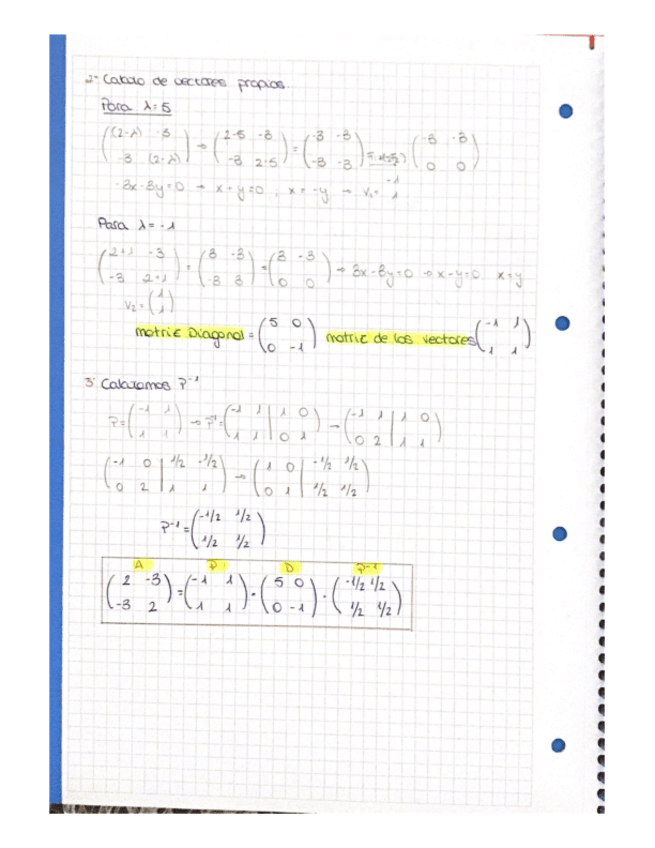 2º Calculo de vectores propios.
Para λ=5
((2-λ) -3 / -3 (2-λ)) → (2-5 -3 / -3 2-5) = (-3 -3 / -3 -3) (-3 -3 / 0 0)
-3x-3y=0 → x+y=0, x=-y → V₁= -1 1
Para λ=-1
(2+1 -3 / -3 2+1) = (3 -3 / -3 3) = (3 -3 / 0 0) → 3x-3y=0 → x-y=0 x=y
V₂=(1 / 1)
matriz Diagonal = (5 0 / 0 -1) matriz de los vectores (-1 1 / 1 1)
3º Calculamos P⁻¹
P=(-1 1 / 1 1) → P⁻¹=(-1 1 | 1 0 / 1 1 | 0 1) → (-1 1 | 1 0 / 0 2 | 1 1)
(-1 0 | 1/2 -1/2 / 0 2 | 1 1) → (1 0 | -1/2 1/2 / 0 1 | 1/2 1/2)
P⁻¹=(-1/2 1/2 / 1/2 1/2)
A P D P⁻¹
(2 -3 / -3 2) = (-1 1 / 1 1) · (5 0 / 0 -1) · (-1/2 1/2 / 1/2 1/2)